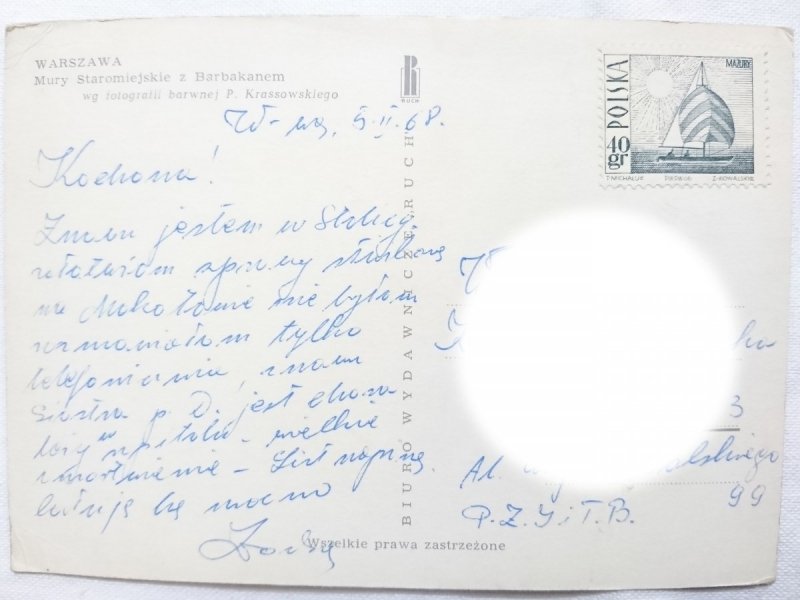 WARSZAWA
Mury Staromiejskie z Barbakanem
wg fotografii barwnej P. Krassowskiego
RUCH
W-wa, 5.II.68.
Kochana!
Znów jestem w Stolicy,
załatwiam sprawy służbowe
na Mokotowie nie byłam
rozmawiałam tylko
telefonicznie, znowu
Siostra p. D. jest chora
leży w szpitalu - wielkie
zmartwienie - List napiszę
całuję Cię mocno
BIURO WYDAWNICZE „RUCH"
Wszelkie prawa zastrzeżone
POLSKA
40 gr
MAZURY
T. MICHALUK
PWPW
Z. KOWALSKI
3
Al.
99
P.Z.U i T.B.